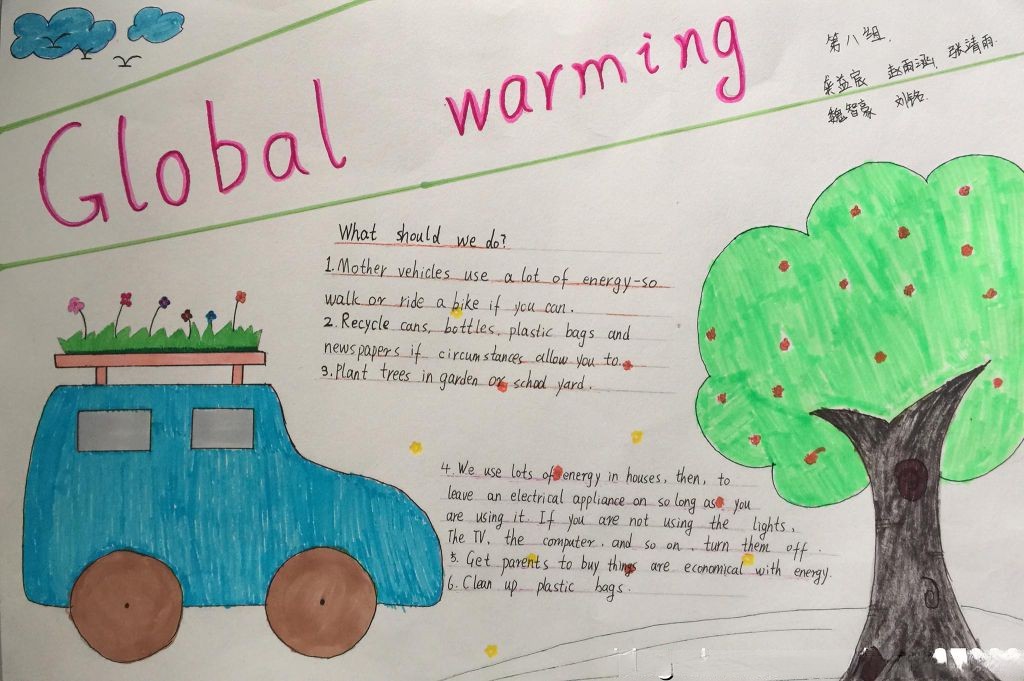 Global warming
第八组.
益宸 赵雨涵 张靖雨
魏智豪 刘铭
What should we do?
1. Mother vehicles use a lot of energy-so
walk or ride a bike if you can.
2. Recycle cans, bottles, plastic bags and
newspapers if circumstances allow you to.
3. Plant trees in garden or school yard.
4. We use lots of energy in houses, then, to
leave an electrical appliance on so long as you
are using it. If you are not using the lights,
The TV, the computer, and so on, turn them off.
5. Get parents to buy things are economical with energy.
6. Clean up plastic bags.